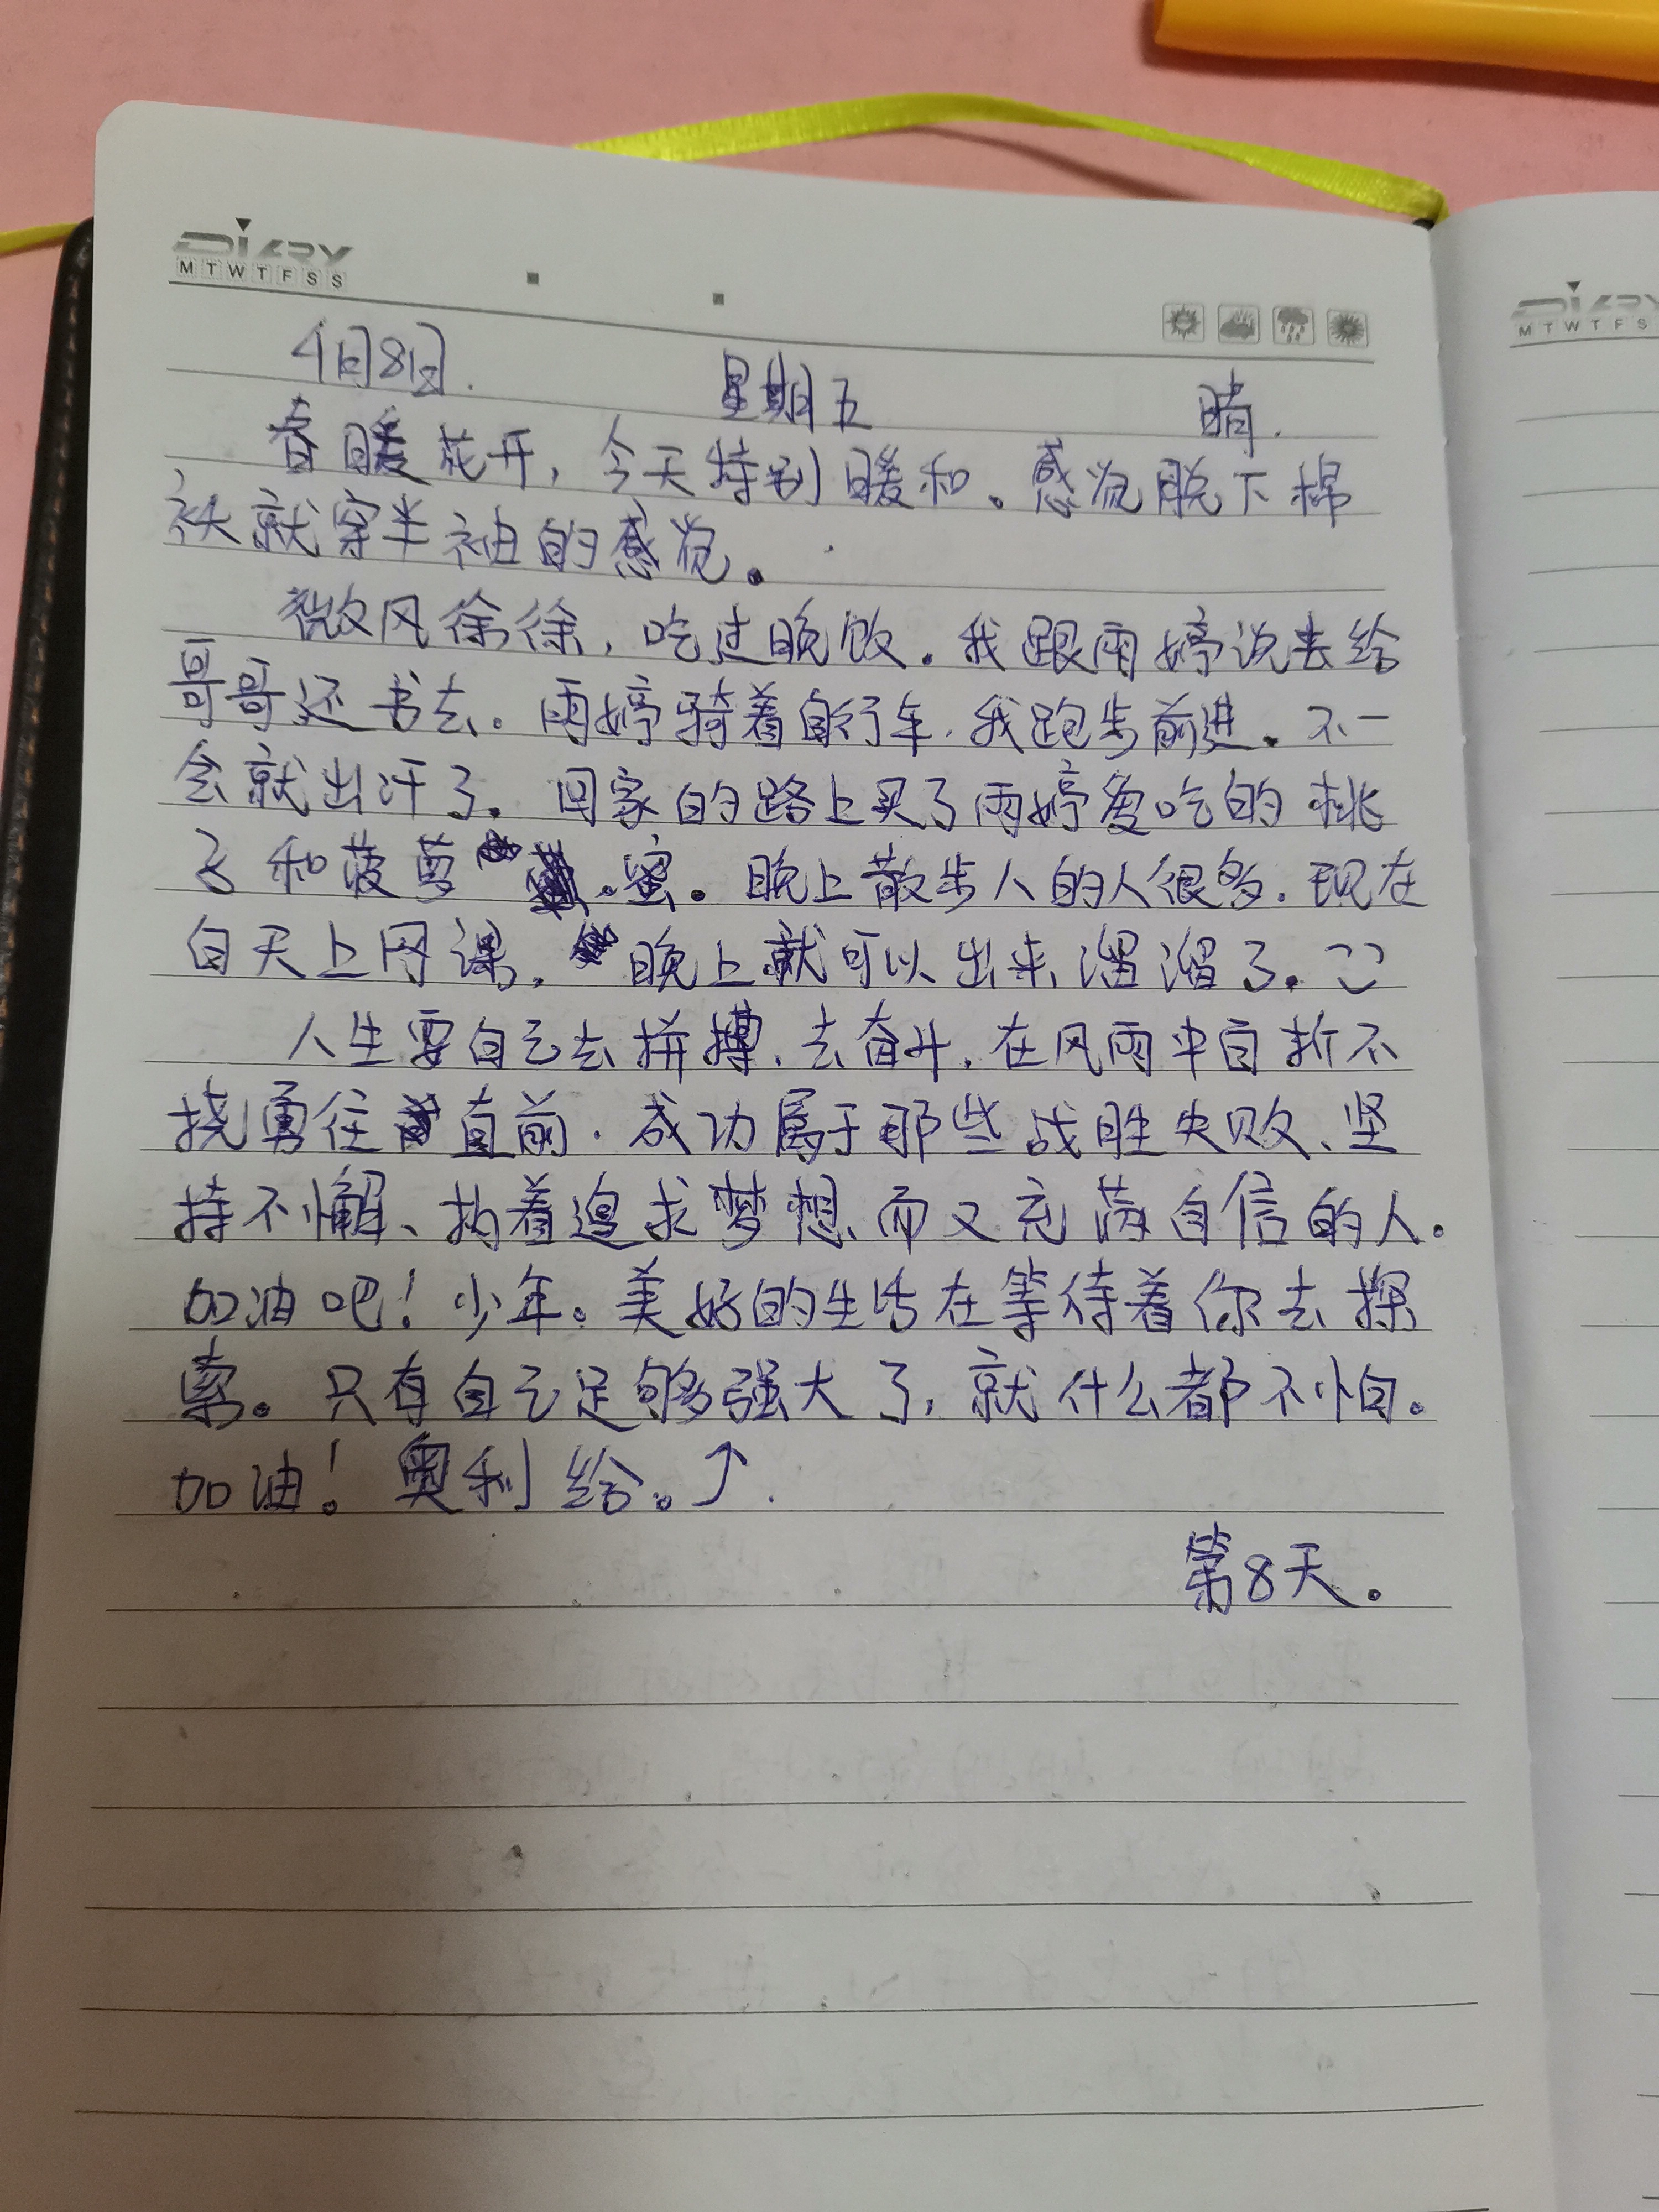 DIARY
MTWTFSS
4月8日. 星期五 晴.
春暖花开，今天特别暖和。感觉脱下棉
袄就穿半袖的感觉。
微风徐徐，吃过晚饭。我跟雨婷说去给
哥哥还书去。雨婷骑着自行车，我跑步前进。不一
会就出汗了。回家的路上买了雨婷爱吃的桃
子和菠萝蜜。晚上散步人的人很多。现在
白天上网课，晚上就可以出来溜溜了。
人生要自己去拼搏、去奋斗，在风雨中百折不
挠勇往直前.成功属于那些战胜失败、坚
持不懈、执着追求梦想、而又充满自信的人。
加油吧！少年。美好的生活在等待着你去探
索。只有自己足够强大了，就什么都不怕。
加油！奥利给。↑.
第8天。
DIARY
MTWTFS